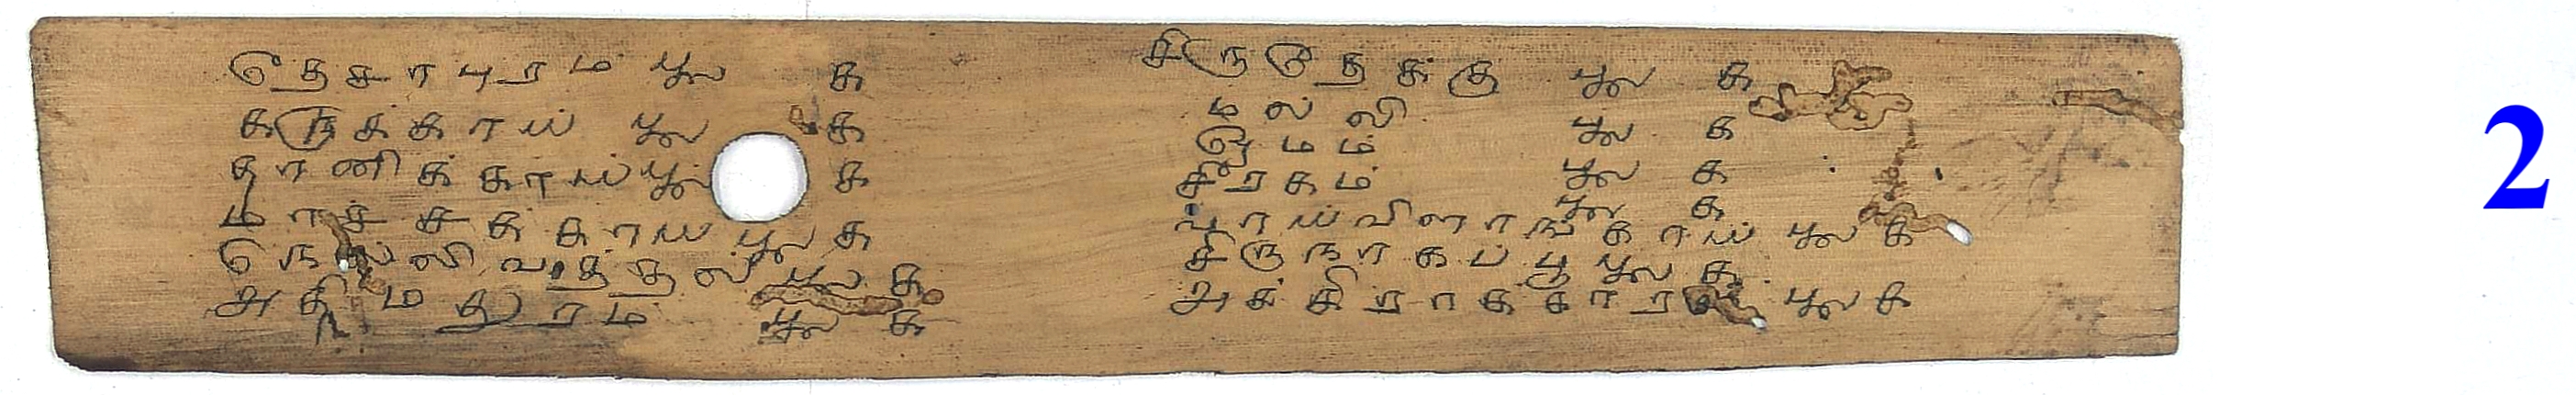 தேசாபுரம் பல க
கருக்காய் பல க
தானிக்காய் பல க
மாச்சக்காய் பல க
நெல்லி வத்தல் பல க
அதிமதுரம் பல க
சிருதேக்கு பல க
மல்லி பல க
ஓமம் பல க
சீரகம் பல க
வாய்விளாங்காய் பல க
சிருநாகப்பூ பல க
அக்கிராக்காரம் பல க
2